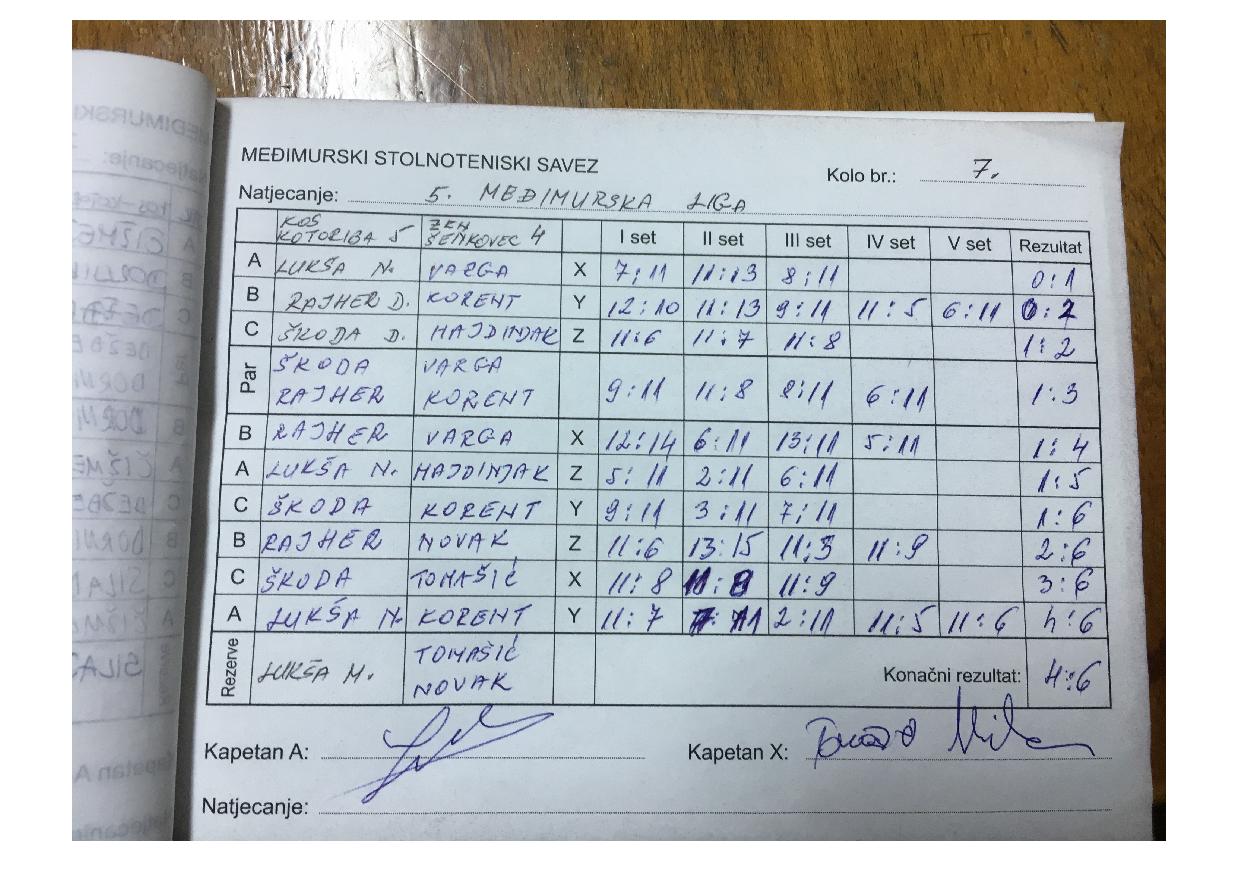 MEĐIMURSKI STOLNOTENISKI SAVEZ
Kolo br.: 7.
Natjecanje: 5. MEĐIMURSKA LIGA
KOŠ KOTORIBA 5 ŽEN ŠENKOVEC 4 I set II set III set IV set V set Rezultat
A LUKŠA N. VARGA X 7:11 11:13 8:11 0:1
B RAJHER D. KORENT Y 12:10 11:13 9:11 11:5 6:11 0:2
C ŠKODA D. HAJDINJAK Z 11:6 11:7 11:8 1:2
Par ŠKODA VARGA
RAJHER KORENT 9:11 11:8 8:11 6:11 1:3
B RAJHER VARGA X 12:14 6:11 13:11 5:11 1:4
A LUKŠA N. HAJDINJAK Z 5:11 2:11 6:11 1:5
C ŠKODA KORENT Y 9:11 3:11 7:11 1:6
B RAJHER NOVAK Z 11:6 13:15 11:3 11:9 2:6
C ŠKODA TOMAŠIĆ X 11:8 11:8 11:9 3:6
A LUKŠA N. KORENT Y 11:7 7:11 2:11 11:5 11:6 4:6
Rezerve LUKŠA M. TOMAŠIĆ
NOVAK
Konačni rezultat: 4:6
Kapetan A:
Kapetan X:
Natjecanje: